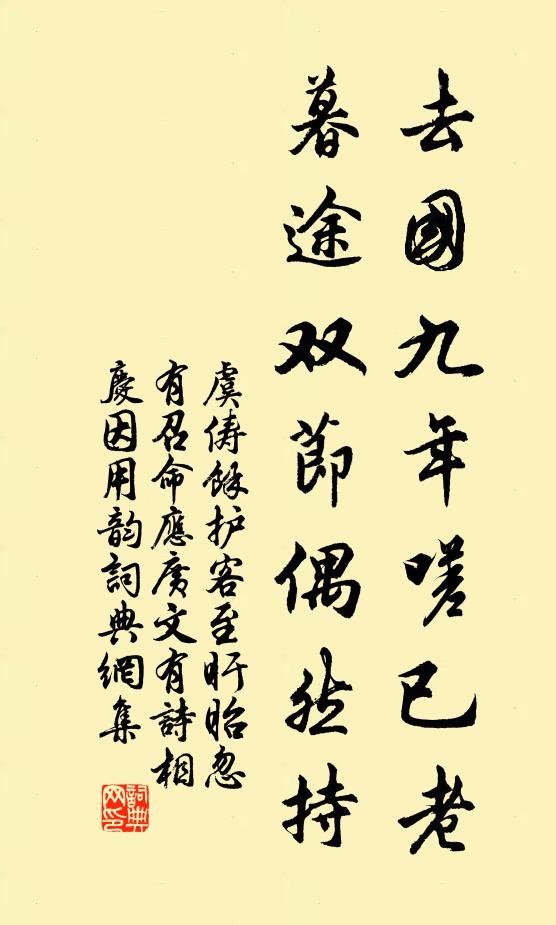 去國九年嗟已老
暮途双節偶然持
虞儔餘护客至盱眙忽
有召命應廣文有詩相
慶因用韵詞典網集
詞典网印